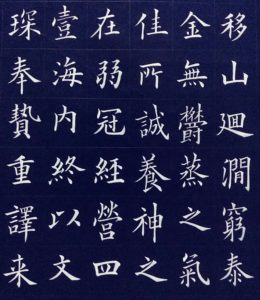 移山廻澗窮泰
金無鬱蒸之氣
佳所誠養神之
在弱冠經營四
壹海内終以文
琛奉贄重譯来